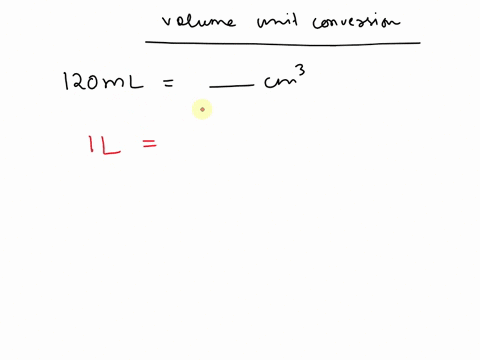 volume unit conversion
120mL = ___ cm³
1L =